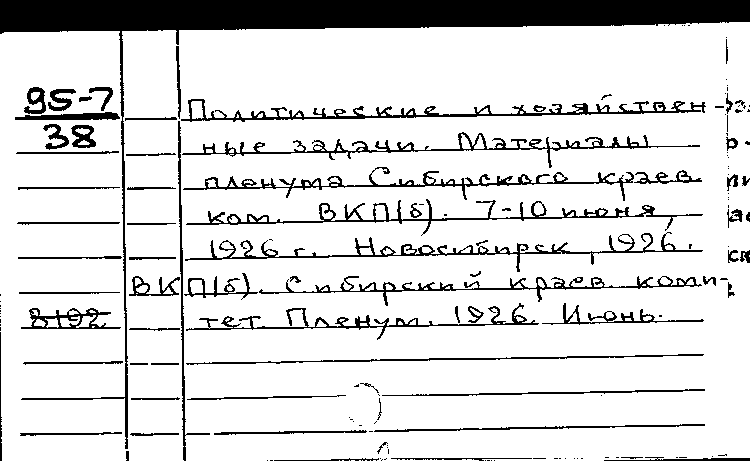 95-7
38
Политические и хозяйствен-
ные задачи. Материалы
пленума Сибирского краев.
ком. ВКП(б). 7-10 июня,
1926 г. Новосибирск, 1926.
ВКП(б). Сибирский краев. коми-
тет. Пленум. 1926. Июнь.
8192